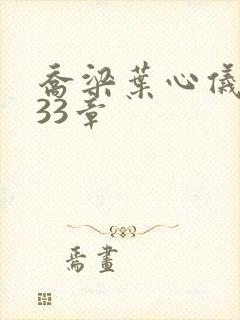 喬梁葉心儀
33章
焉畫